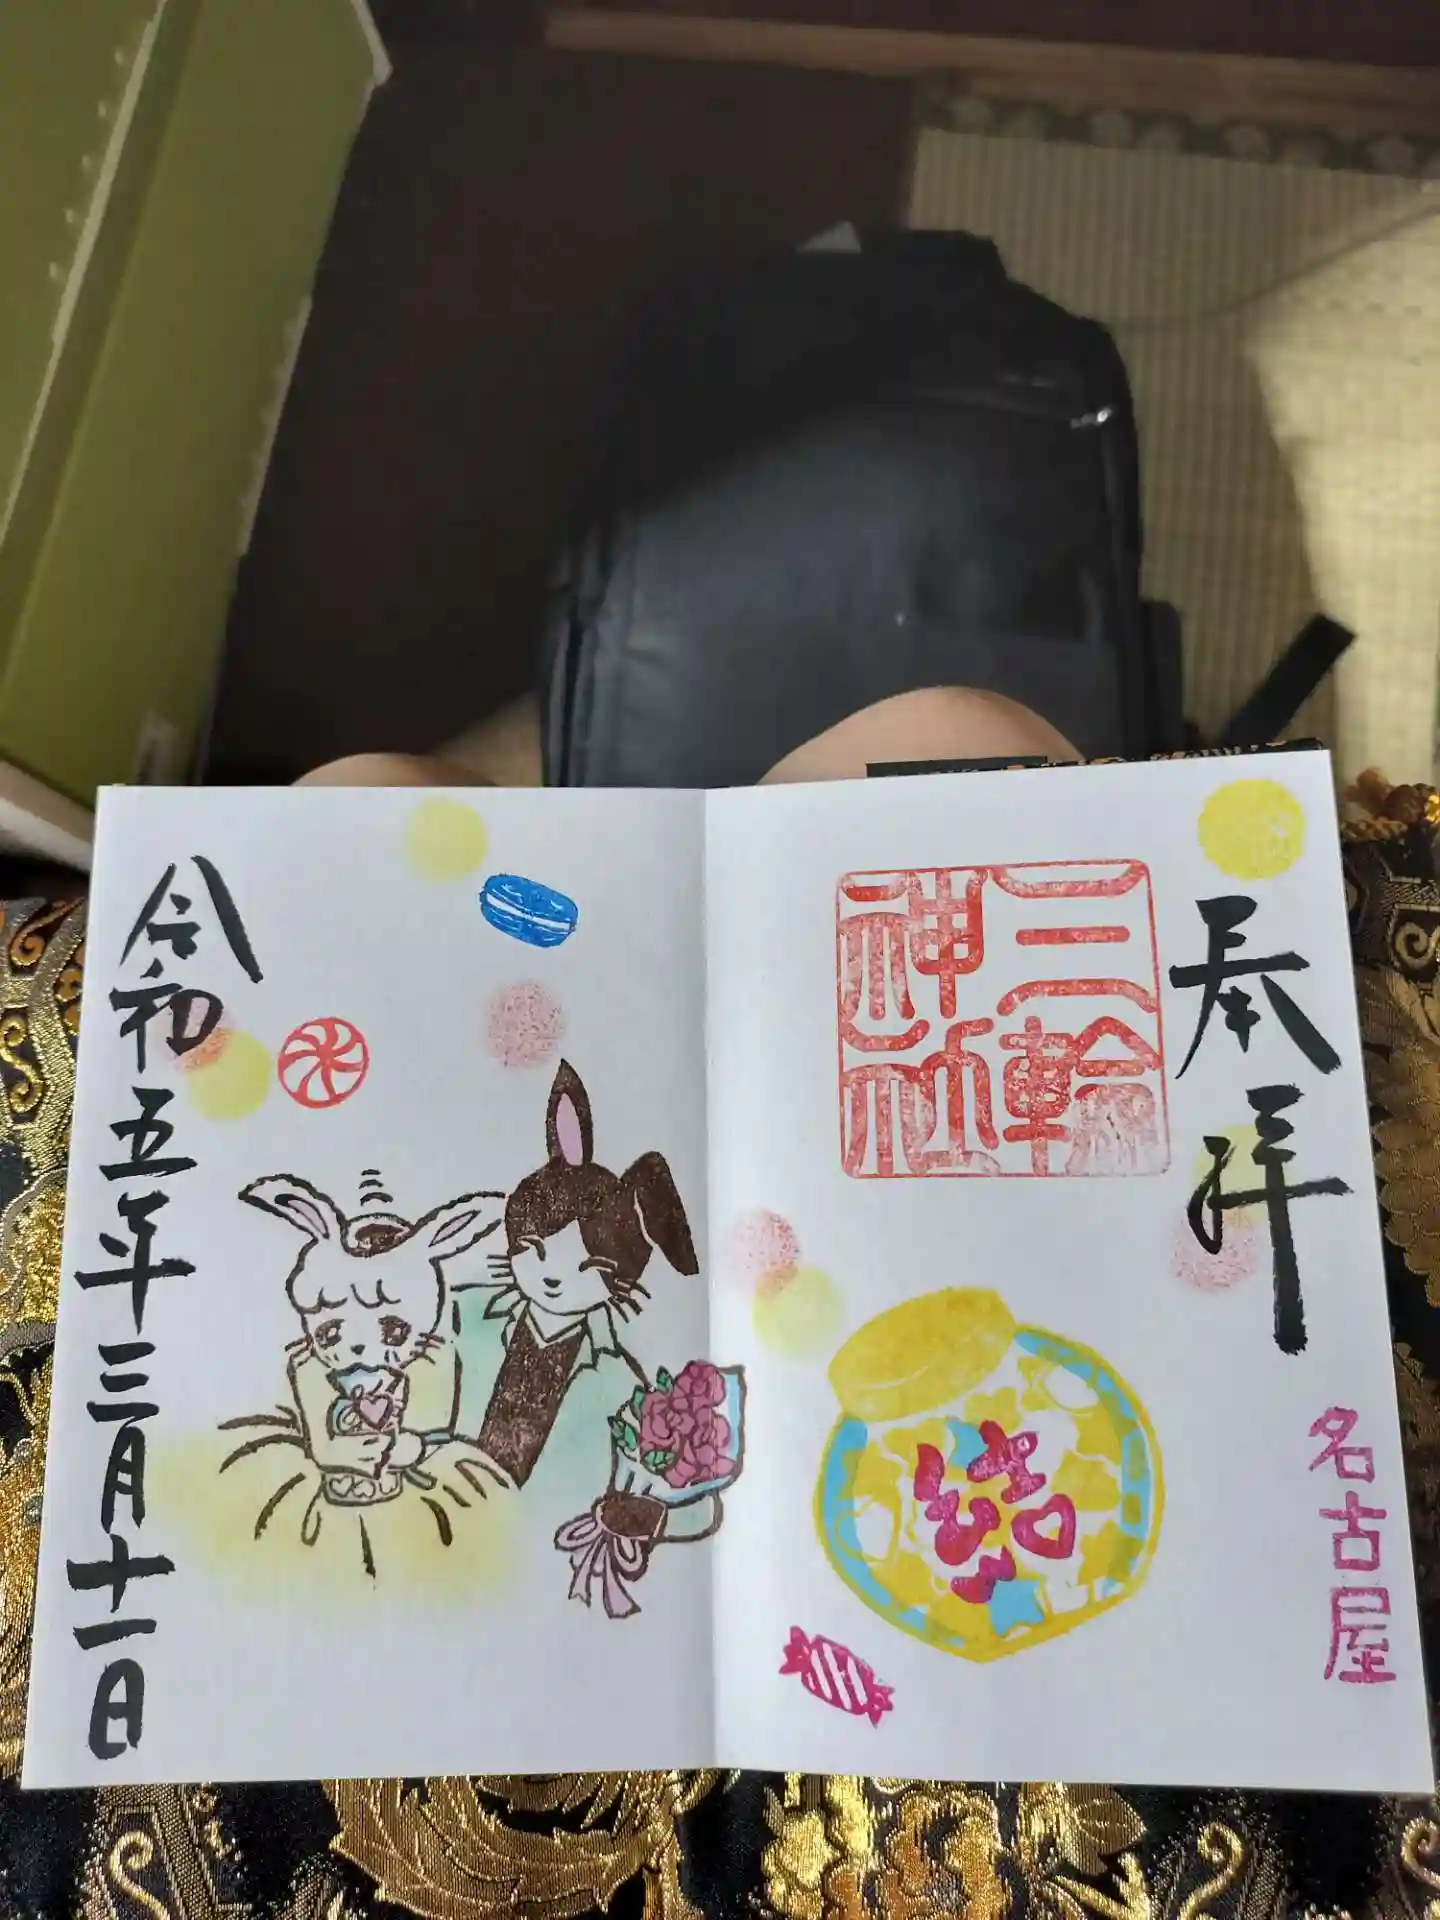 奉拝
三輪神社
結
名古屋
令和五年三月十一日